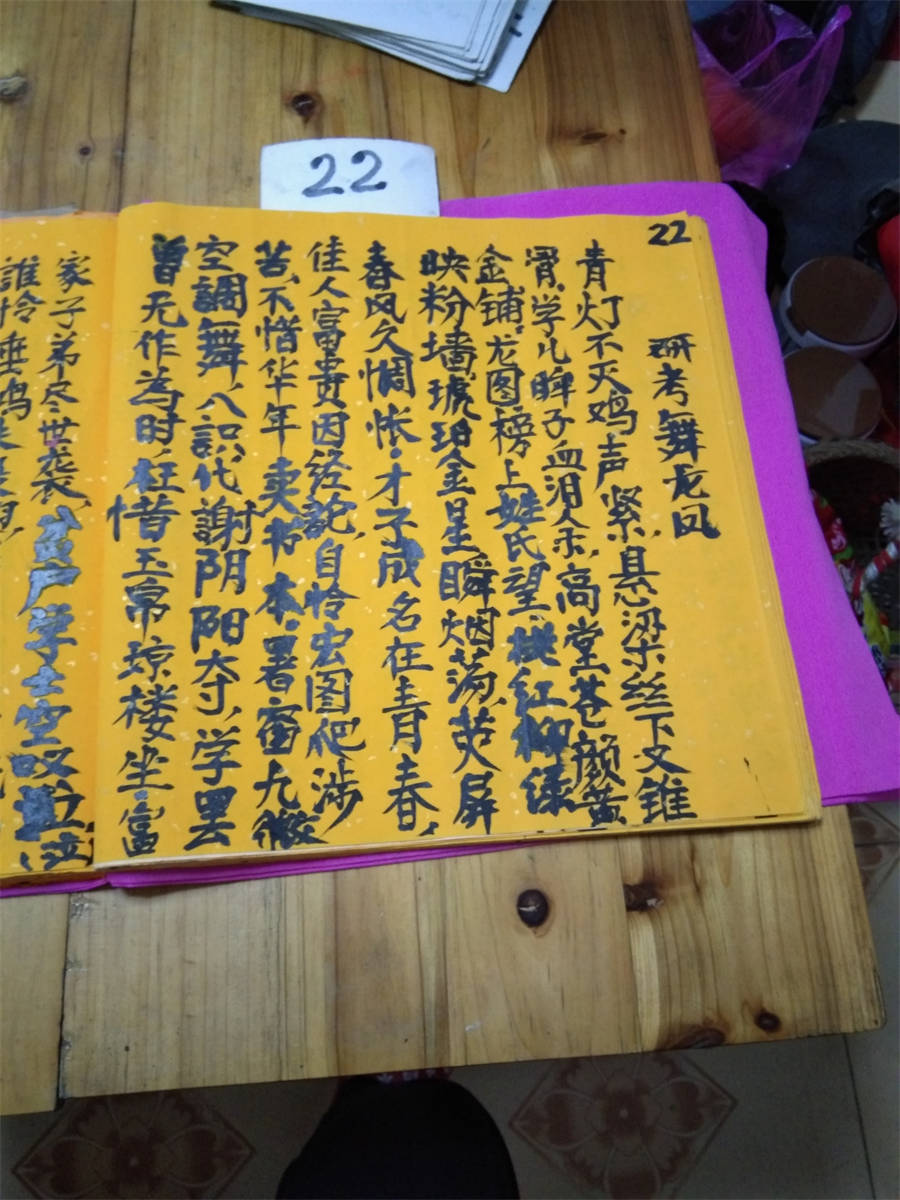 22
22
研考舞龙凤
青灯不灭鸡声紧,悬梁丝下又锥
骨,学儿眸子血泪尽,高堂苍颜黄
金铺.龙图榜上姓氏望,横红柳绿
映粉墙.琥珀金星瞬烟荡,荧屏
春风久惆怅.才子成名在青春,
佳人富贵因经，自怜宏图爬涉
苦,不惜华年卖书本.署窗九
空调舞,八识代谢阴阳夺,学罢
曾无作为时,枉惜玉帛琼楼坐.富
家子弟尽世袭,学士空叹
誰怜垂鸡